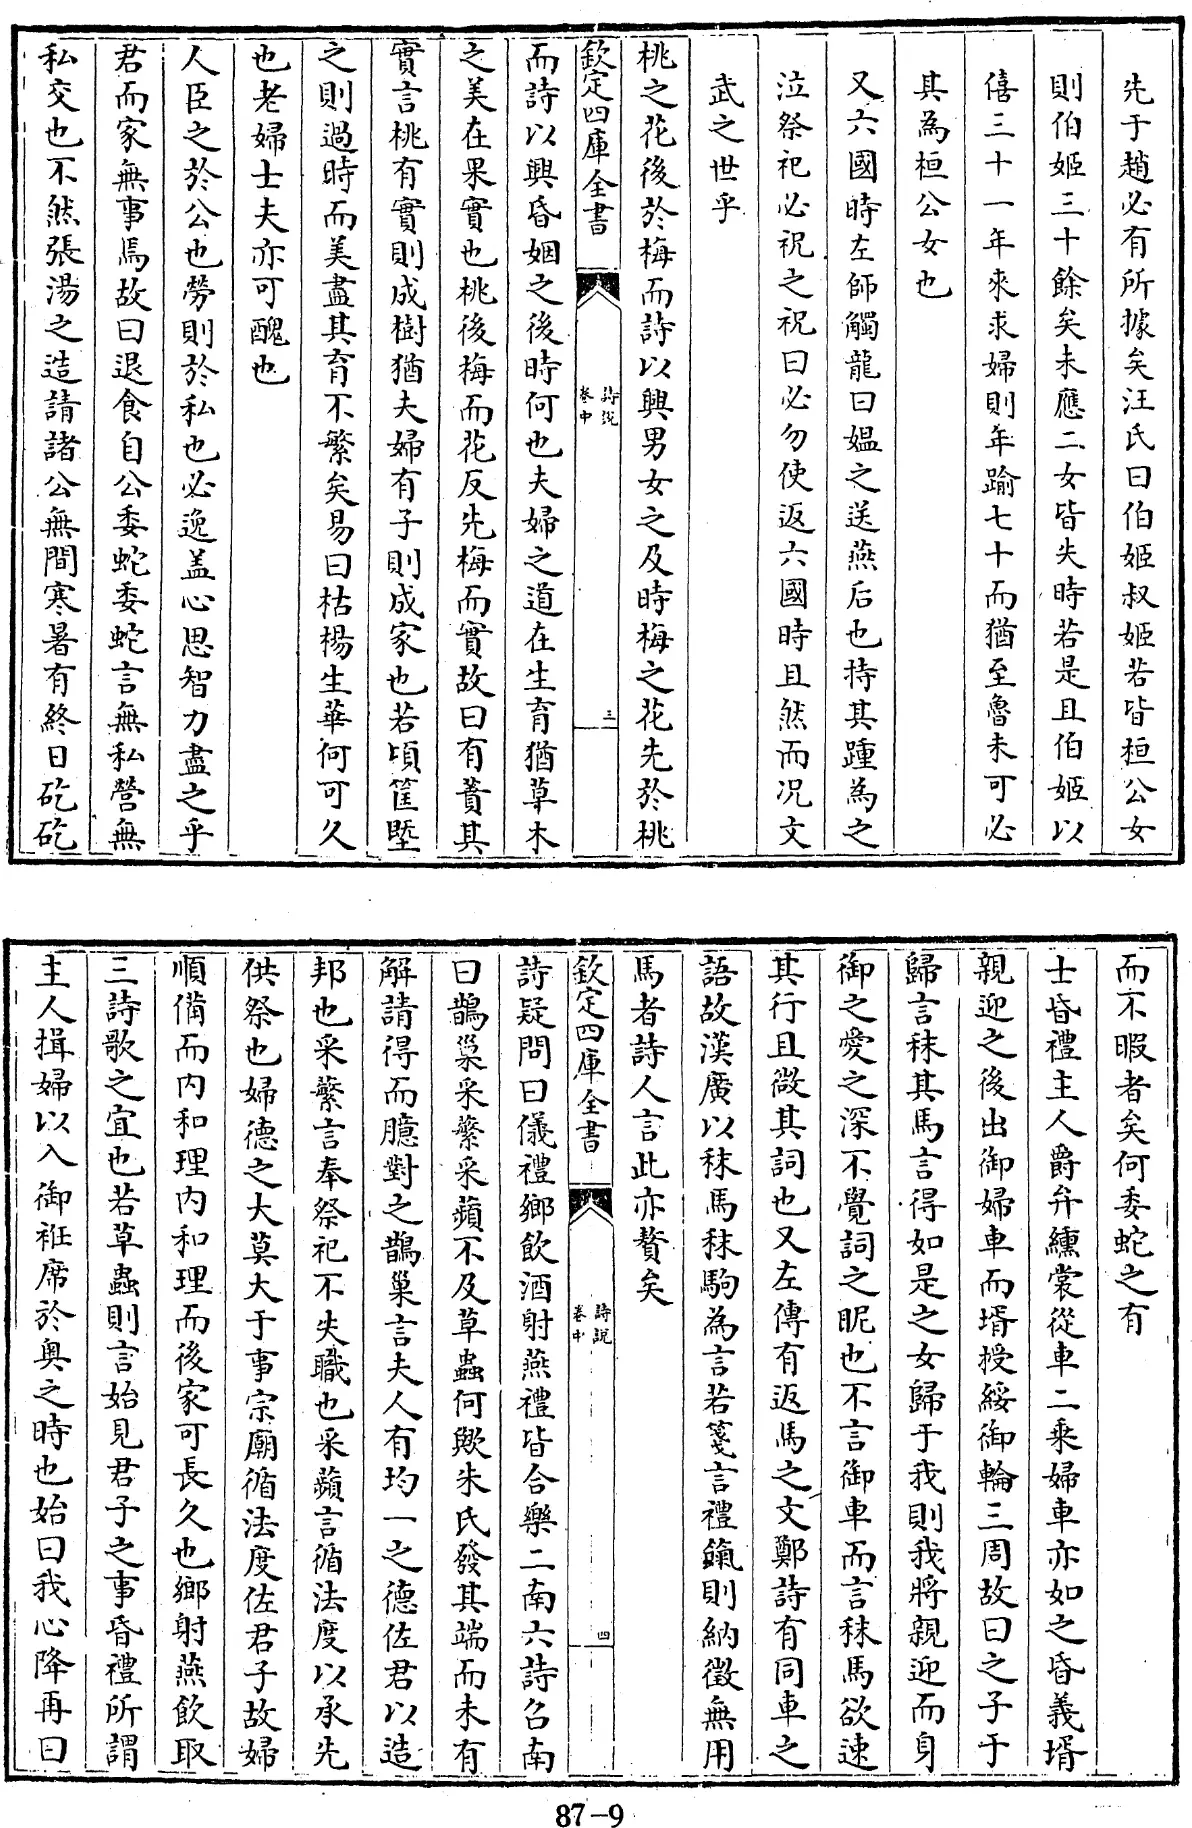 先于趙必有所據矣汪氏曰伯姬叔姬若皆桓公女
則伯姬三十餘矣未應二女皆失時若是且伯姬以
僖三十一年來求婦則年踰七十而猶至魯未可必
其為桓公女也
又六國時左師觸龍曰媼之送燕后也持其踵為之
泣祭祀必祝之祝曰必勿使返六國時且然而况文
武之世乎
桃之花後於梅而詩以興男女之及時梅之花先於桃
欽定四庫全書
詩說
卷中
三
而詩以興昏姻之後時何也夫婦之道在生育猶草木
之美在果實也桃後梅而花反先梅而實故曰有蕡其
實言桃有實則成樹猶夫婦有子則成家也若頃筐塈
之則過時而美盡其育不繁矣易曰枯楊生華何可久
也老婦士夫亦可醜也
人臣之於公也勞則於私也必逸盖心思智力盡之乎
君而家無事焉故曰退食自公委蛇委蛇言無私營無
私交也不然張湯之造請諸公無間寒暑有終日矻矻
而不暇者矣何委蛇之有
士昏禮主人爵弁纁裳從車二乘婦車亦如之昏義壻
親迎之後出御婦車而壻授綏御輪三周故曰之子于
歸言秣其馬言得如是之女歸于我則我將親迎而身
御之愛之深不覺詞之昵也不言御車而言秣馬欲速
其行且微其詞也又左傳有返馬之文鄭詩有同車之
語故漢廣以秣馬秣駒為言若箋言禮餼則納徵無用
馬者詩人言此亦贅矣
欽定四庫全書
詩說
卷中
四
詩疑問曰儀禮鄉飲酒射燕禮皆合樂二南六詩召南
曰鵲巢采蘩采蘋不及草蟲何歟朱氏發其端而未有
解請得而臆對之鵲巢言夫人有均一之德佐君以造
邦也采蘩言奉祭祀不失職也采蘋言循法度以承先
供祭也婦德之大莫大于事宗廟循法度佐君子故婦
順備而内和理内和理而後家可長久也鄉射燕飲取
三詩歌之宜也若草蟲則言始見君子之事昏禮所謂
主人揖婦以入御衽席於奥之時也始曰我心降再曰
87-9